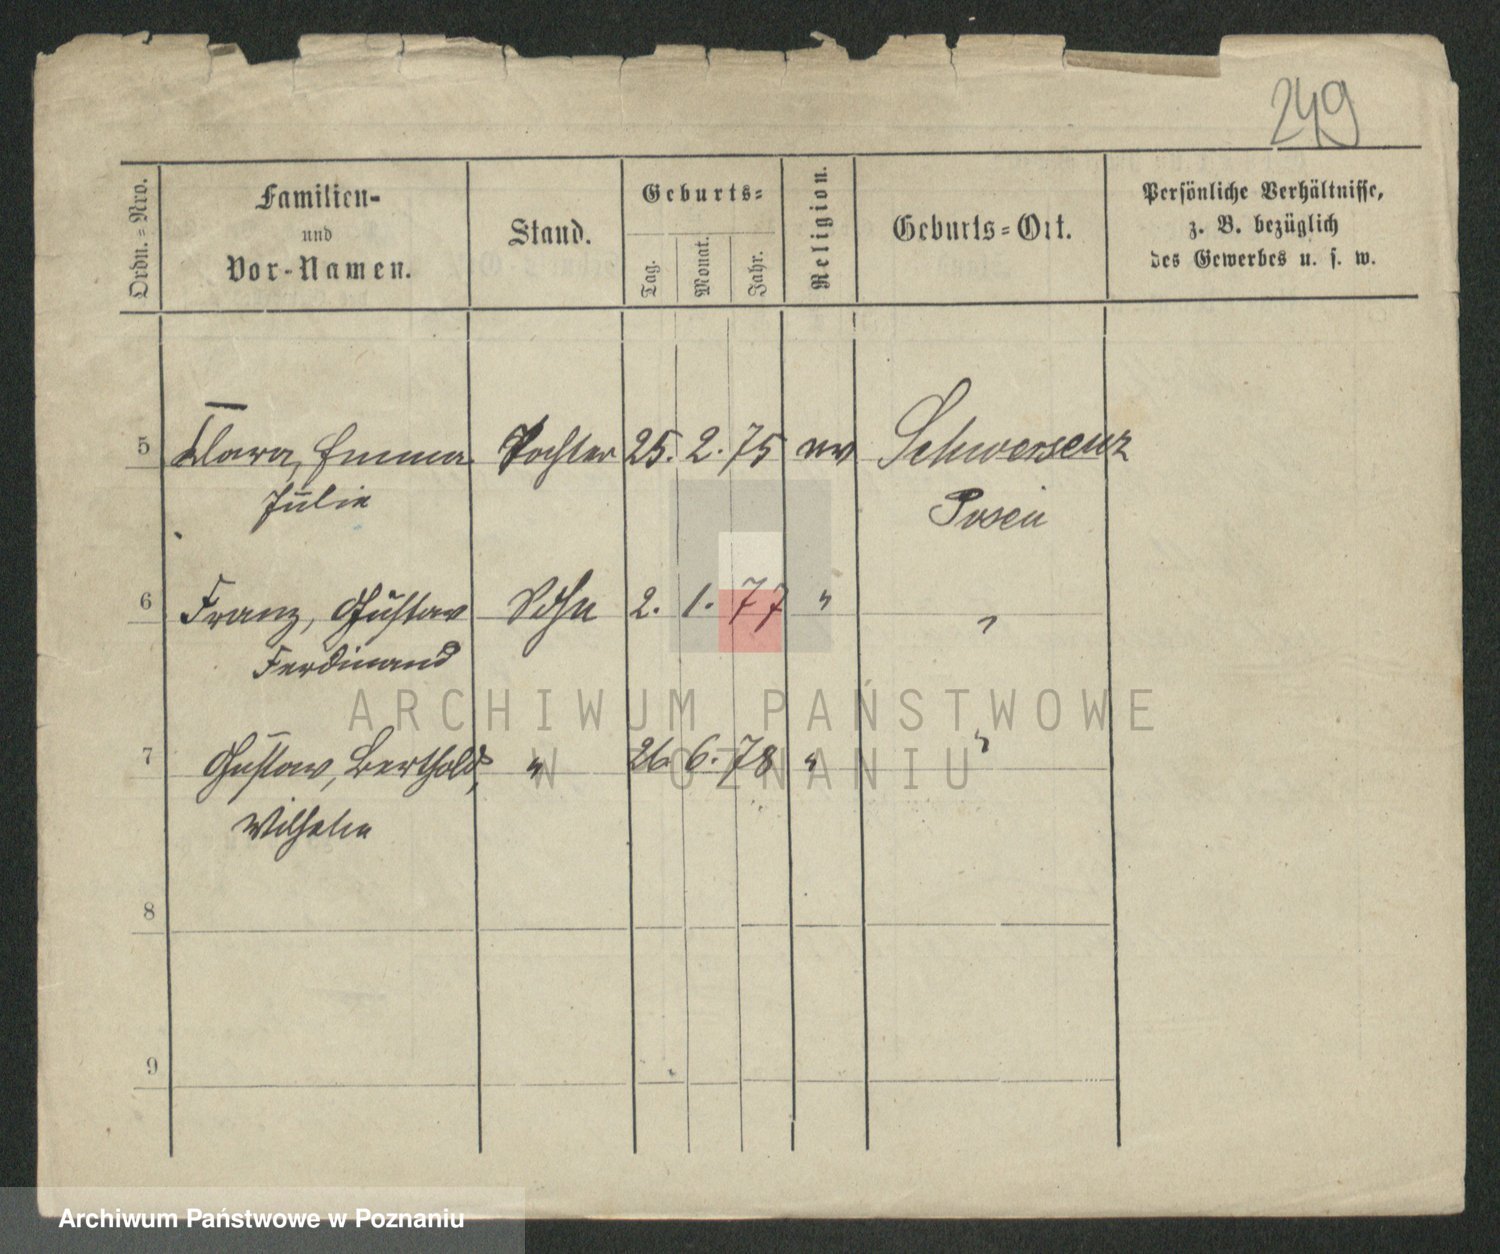 249
Ordn.=Nro.
Familien-
und
Vor-Namen.
Stand.
Geburts=
Tag.
Monat.
Jahr.
Religion.
Geburts=Ort.
Persönliche Verhältnisse,
z. B. bezüglich
des Gewerbes u. s. w.
5 Clara, Emma Tochter 25. 2. 75 ev Schwersenz
Julie Posen
6 Franz, Gustav Sohn 2. 1. 77 " "
Ferdinand
7 Gustav, Berthold, " 26. 6. 78 " "
Wilhelm
8
9
ARCHIWUM PAŃSTWOWE
W POZNANIU
Archiwum Państwowe w Poznaniu